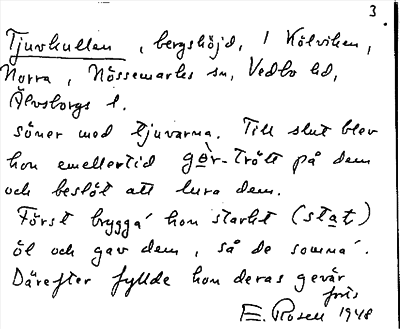 3.
Tjuvkullen, bergshöjd, i Kölviken,
Norra, Nössemarks sn, Vedbo hd,
Älvsborgs l.
söner med tjuvarna. Till slut blev
hon emellertid gør-trött på dem
och beslöt att lura dem.
Först brygga´ hon starkt (stat)
öl och gav dem, så de somna´.
Därefter fyllde hon deras gevär
forts
E. Rosell 1948